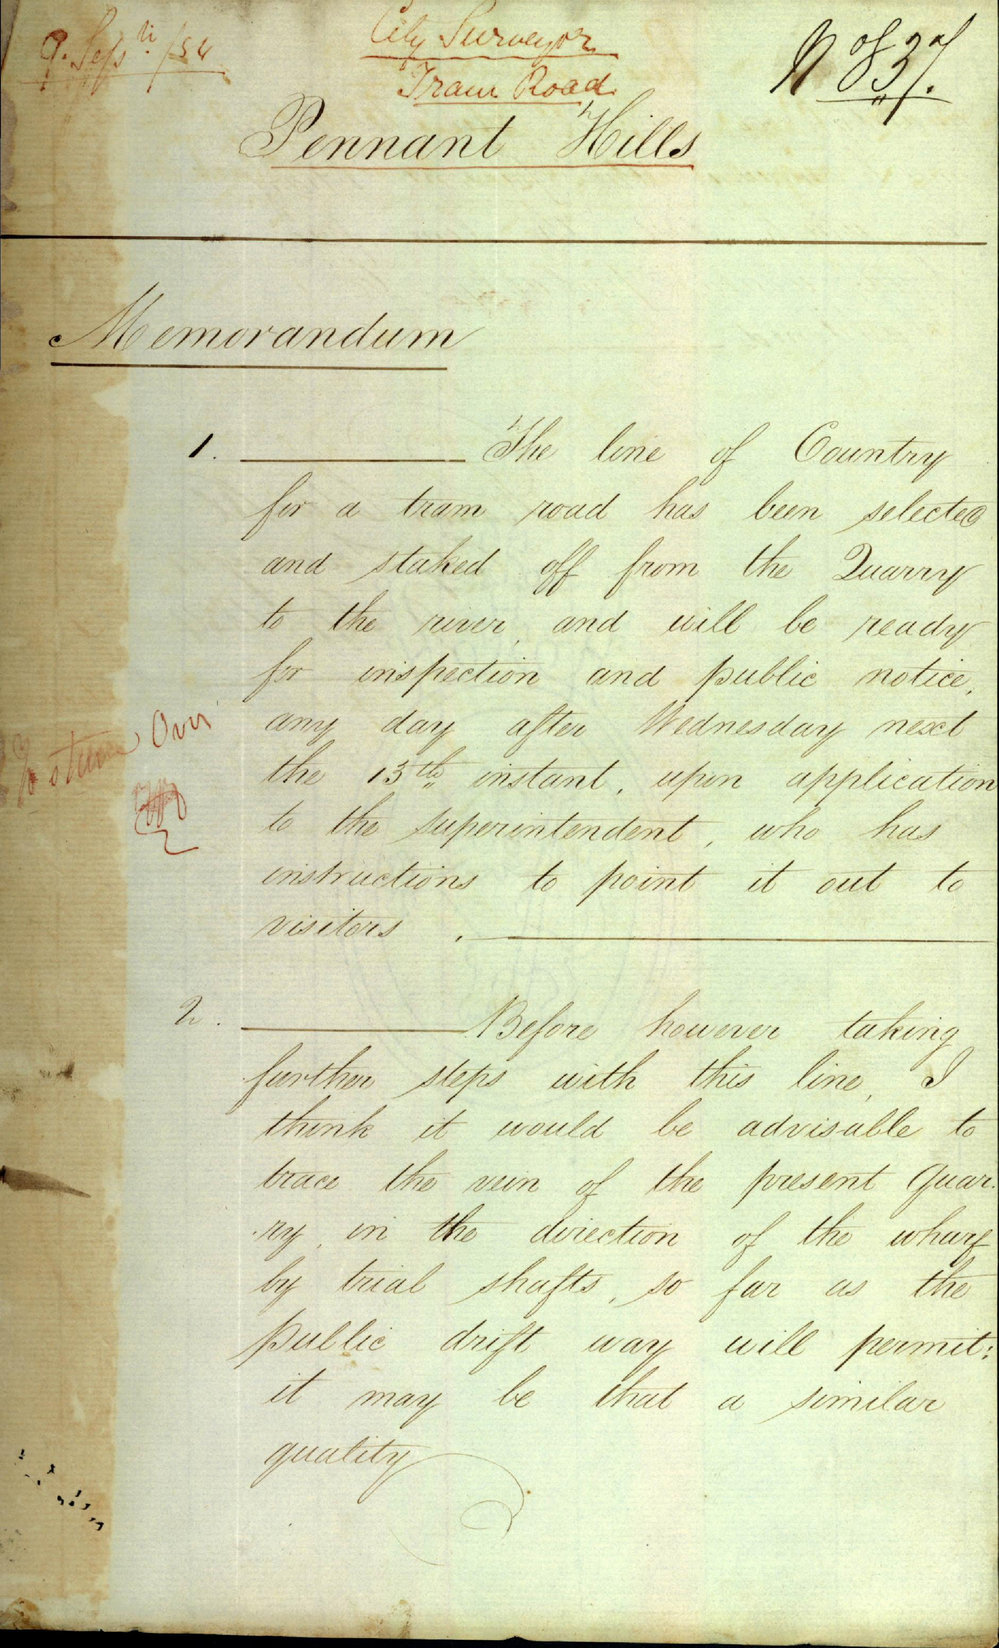 9. Sept /54
City Surveyor
Tram Road
No 837.
Pennant Hills
Memorandum
1. The line of Country
for a tram road has been selected
and staked off from the Quarry
to the river, and will be ready
for inspection and public notice,
any day after Wednesday next
the 13th instant, upon application
to the superintendent, who has
instructions to point it out to
visitors.
Over
2. Before however taking
further steps with this line, I
think it would be advisable to
trace the vein of the present Quar-
-ry, in the direction of the wharf
by trial shafts, so far as the
public drift way will permit:
it may be that a similar
quality